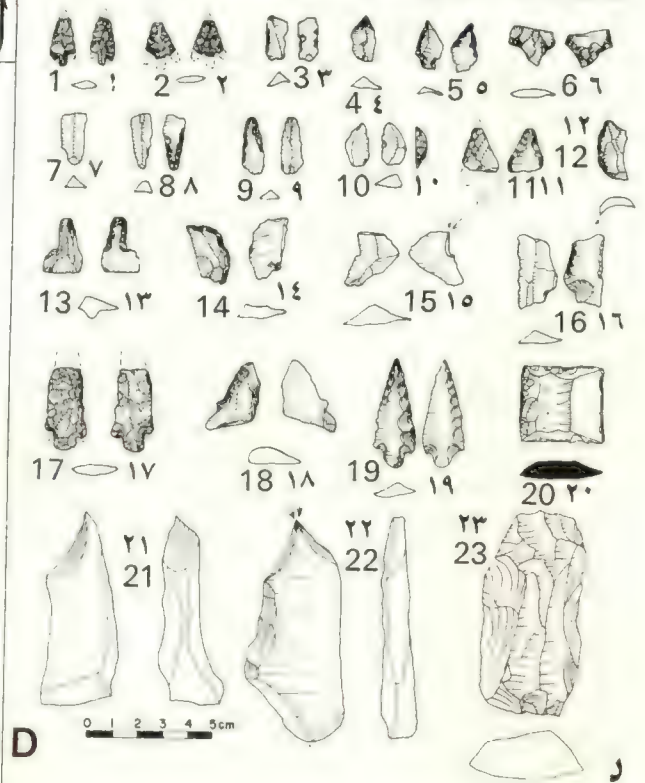 1 ١ 2 ٢ 3 ٣ 4 ٤ 5 ٥ 6 ٦
7 ٧ 8 ٨ 9 ٩ 10 ١٠ 11 ١١ 12 ١٢
13 ١٣ 14 ١٤ 15 ١٥ 16 ١٦
17 ١٧ 18 ١٨ 19 ١٩ 20 ٢٠
٢١ ٢٢ ٢٣
21 22 23
0 1 2 3 4 5cm
D د